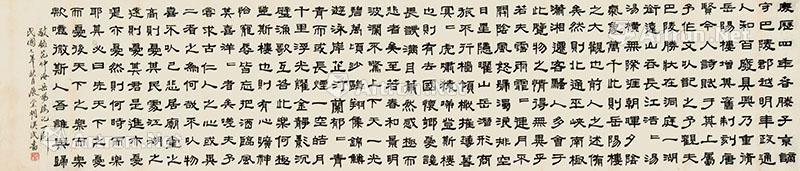 慶歷四年春滕子京謫
守巴陵郡越明年政通
人和百廢具興乃重修
岳陽樓增其舊制刻唐
賢今人詩賦于其上屬
予作文以記之予觀夫
巴陵勝狀在洞庭一湖
銜遠山吞長江浩=湯
湯橫無際涯朝暉夕陰
氣象萬千此則岳陽樓
之大觀也前人之述備
矣然則北通巫峽南極
瀟湘遷客騷人多會于
此覽物之情得無異乎
若夫霪雨霏=連月不
開陰風怒號濁浪排空
日星隱曜山岳潛形商
旅不行檣傾楫摧薄暮
冥=虎嘯猿啼登斯樓
也則有去國懷鄉憂讒
畏譏滿目蕭然感極而
悲者矣至若春和景明
波瀾不驚上下天光一
碧萬頃沙鷗翔集錦鱗
游泳岸芷汀蘭郁=青
青而或長煙一空皓月
千里浮光躍金靜影沉
璧漁歌互答此樂何極
登斯樓也則有心曠神
怡寵辱皆忘把酒臨風
其喜洋=者矣嗟夫予
嘗求古仁人之心或異
二者之為何哉不以物
喜不以己悲居廟堂之
高則憂其民處江湖之
遠則憂其君是進亦憂
退亦憂然則何時而樂
耶其必曰先天下之憂
而憂後天下之樂而樂
歟噫微斯人吾誰與歸
敬錄范仲淹岳陽樓記一
民國七年 胡漢民書